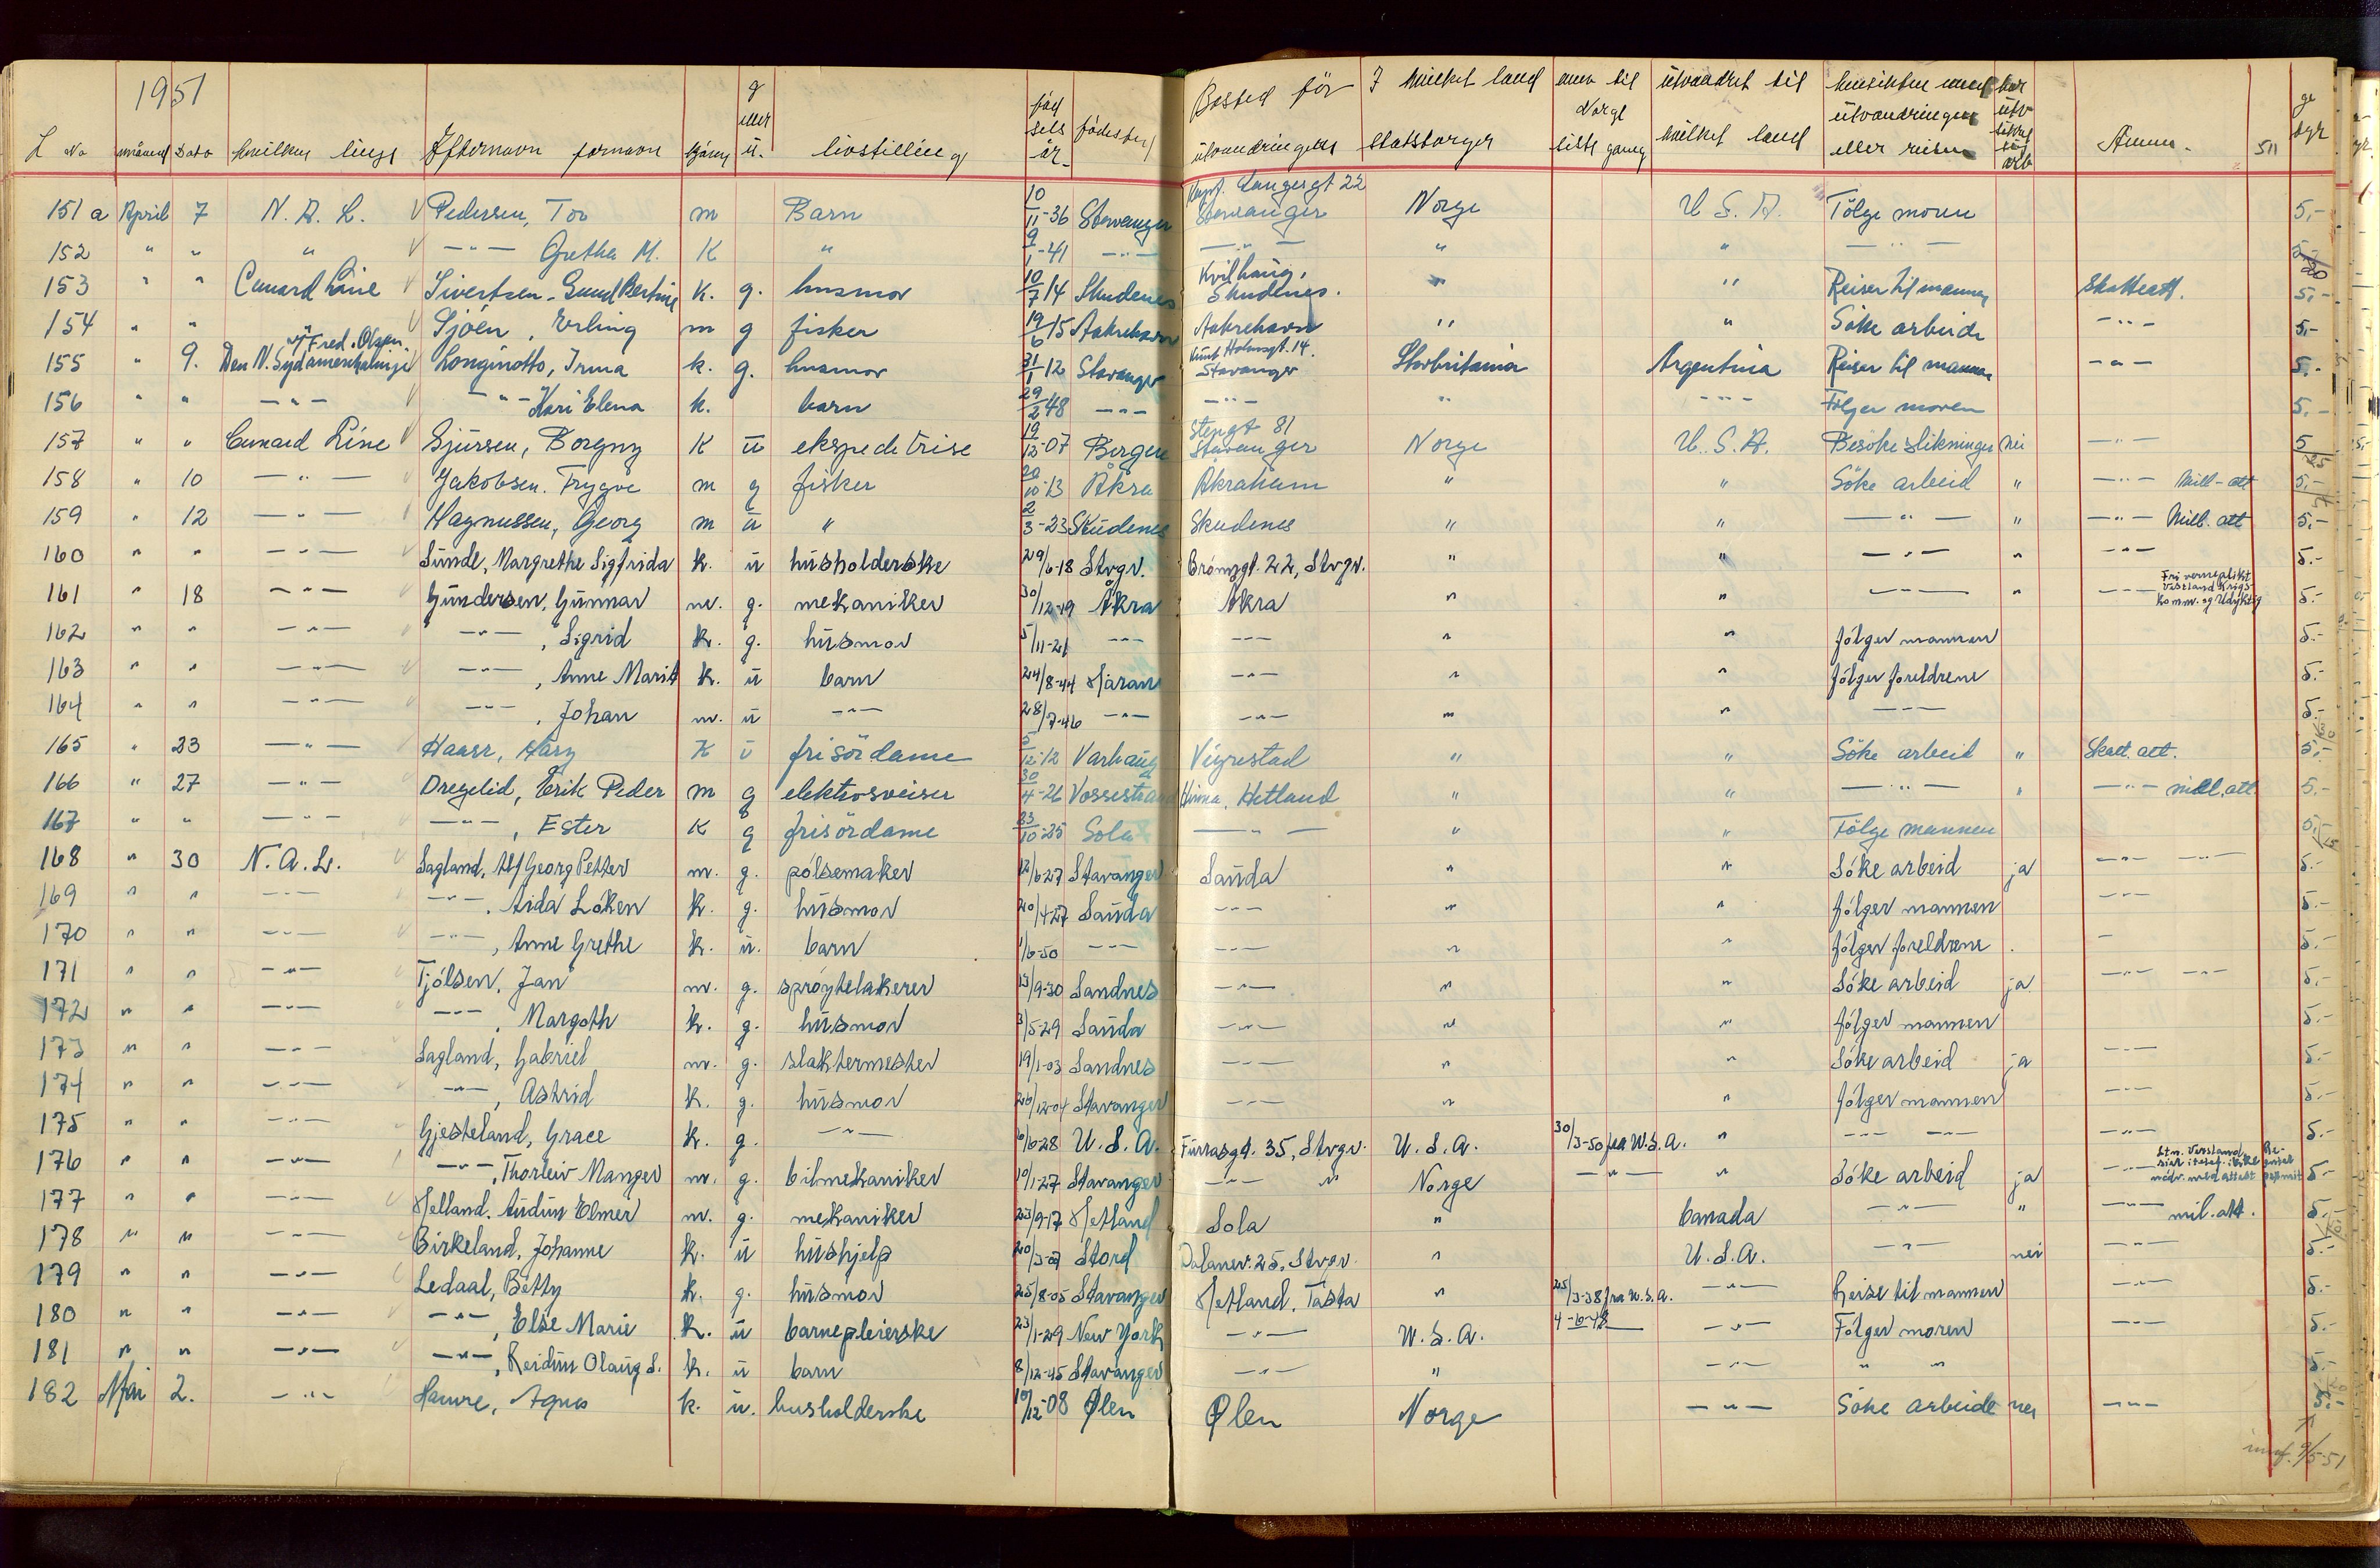 1951
L No måned Dato hvilken linje Efternavn fornavn kjønn g eller u. livsstilling fødselsår fødested Bosted før utvandringen I hvilket land statsborger ank til Norge siste gang utvandret til hvilket land hensikten med utvandringen eller reisen har utv sikret sig arb Anm. 511 gebyr
151a April 7 N. A. L. Pedersen, Tor m Barn 10/11-36 Stavanger Kapt. Langesgt 22 Stavanger Norge U S. A. Følge moren 5,-
152 " " " -"- Grethe M. K " 9/1-41 -"- -"- " " -"- 5,- 20
153 " " Cunard Line Sivertsen, Gund Bertine K. g. husmor 10/7 14 Skudenes Kvilhaug, Skudenes. " " Reiser til mannen Skatteatt. 5,-
154 " " Sjöen, Erling m g fisker 19/6 15 Aakrehavn Aakrehavn " " Söke arbeide -"- 5,-
155 " 9. v/Fred. Olsen. Den N. Sydamerikalinje Longinotto, Irma k. g. husmor 31/1-12 Stavanger Knut Holmsgt. 14. Stavanger Storbritania Argentina Reiser til mannen -"- 5,-
156 " " -"- -"- Kari Elena k. barn 29/2 48 -"- -"- " -"- Følger moren 5,-
157 " " Cunard Line Gjursen, Borgny K u ekspeditrise 19/12-07 Bergen Stengt 81 Stavanger Norge U. S. A. Besöke slektninger nei -"- 5 25
158 " 10 -"- Jakobsen. Trygve m g fisker 20/10-13 Åkra Åkrahamn " " Söke arbeid " -"- Mill-att 5,-
159 " 12 -"- Magnussen, Georg m u " 2/3-23 Skudenes Skudenes " " -"- " -"- Mill. att 5,-
160 " " -"- Sunde, Margrethe Sigfrida k. u husholderske 29/6-18 Stvgr. Brönngt. 22, Stvgr. " " -"- " -"- 5.-
161 " 18 -"- Gundersen, Gunnar m. g. mekaniker 30/12-19 Åkra Åkra " " -"- " -"- Fri verneplikt Vestland Krigskomm. og Udyktig 5.-
162 " " -"- -"-, Sigrid k. g. husmor 5/11-21 -"- -"- " " følger mannen 5.-
163 " " -"- -"-, Anne Marit k. u barn 24/8-44 -"- " " følger foreldrene 5.-
164 " " -"- -"-, Johan m. u -"- 28/7-46 -"- -"- " " -"- 5.-
165 " 23 -"- Haaer, Mary K u frisördame 5/12-12 Varhaug Vigrestad " " Söke arbeid " Skatt. att. 5,-
166 " 27 -"- Dregelid, Erik Peder m g elektrosveiser 30/4-26 Vossestrand Hinna, Hetland " " -"- " -"- mill. att. 5.-
167 " " -"- -"-, Ester K g frisördame 23/10-25 Sola -"- " " Følge mannen 5,-
168 " 30 N. A. L. Sagland, Alf Georg Petter m. g. pølsemaker 12/6-27 Stavanger Sauda " " Söke arbeid ja -"- -"- 5.-
169 " " -"- -"-, Aida Løken k. g. husmor 20/4-27 Sauda -"- " " følger mannen -"- 5.-
170 " " -"- -"-, Anne Grethe k. u. barn 1/6-50 -"- -"- " " følger foreldrene. - 5.-
171 " " -"- Tjølsen, Jan m. g. sprøytelakerer 13/9-30 Sandnes -"- " " Söke arbeid ja -"- -"- 5.-
172 " " -"- -"-, Margoth k. g. husmor 3/5-29 Sauda -"- " " følger mannen 5.-
173 " " -"- Sagland, Gabriel m. g. slaktermester 19/1-03 Sandnes -"- " " Söke arbeid ja -"- 5.-
174 " " -"- -"-, Astrid k. g. husmor 26/12-04 Stavanger -"- " " følger mannen -"- 5.-
175 " " -"- Gjesteland, Grace k. g. -"- 6/6-28 U. S. A. Furrasgt. 35, Stvgr. U. S. A. 30/3-50 fra U. S. A. " -"- -"- -"- 5.-
176 " " -"- -"-, Thorleiv Manger m. g. bilmekaniker 10/1-27 Stavanger -"- " Norge -"- " Söke arbeid ja -"- 5.-
177 " " -"- Helland. Audun Elmer m. g. mekaniker 23/9-17 Hetland Sola " Canada -"- " -"- mil. att. 5.-
178 " " -"- Birkeland, Johanne k. u hushjelp 20/3-07 Stord Dalanev. 25, Stvgr. " U. S. A. -"- nei -"- 5.-
179 " " -"- Ledaal, Betty k. g. husmor 25/8-05 Stavanger Hetland, Tasta " 25/3-38 fra U. S. A. -"- Reise til mannen -"- 5.-
180 " " -"- -"-, Else Marie k. u barnepleierske 23/1-29 New York -"- U. S. A. 4-6-48 -"- Følger moren -"- 5.-
181 " " -"- -"-, Reidun Olaug S. k. u barn 8/12-45 Stavanger -"- " -"- " " 5.-
182 Mai 2. -"- Hamre, Agnes k. u. husholderske 10/12-08 Ølen Ølen Norge -"- Söke arbeide nei -"- 5.-
innf. 9/5-51